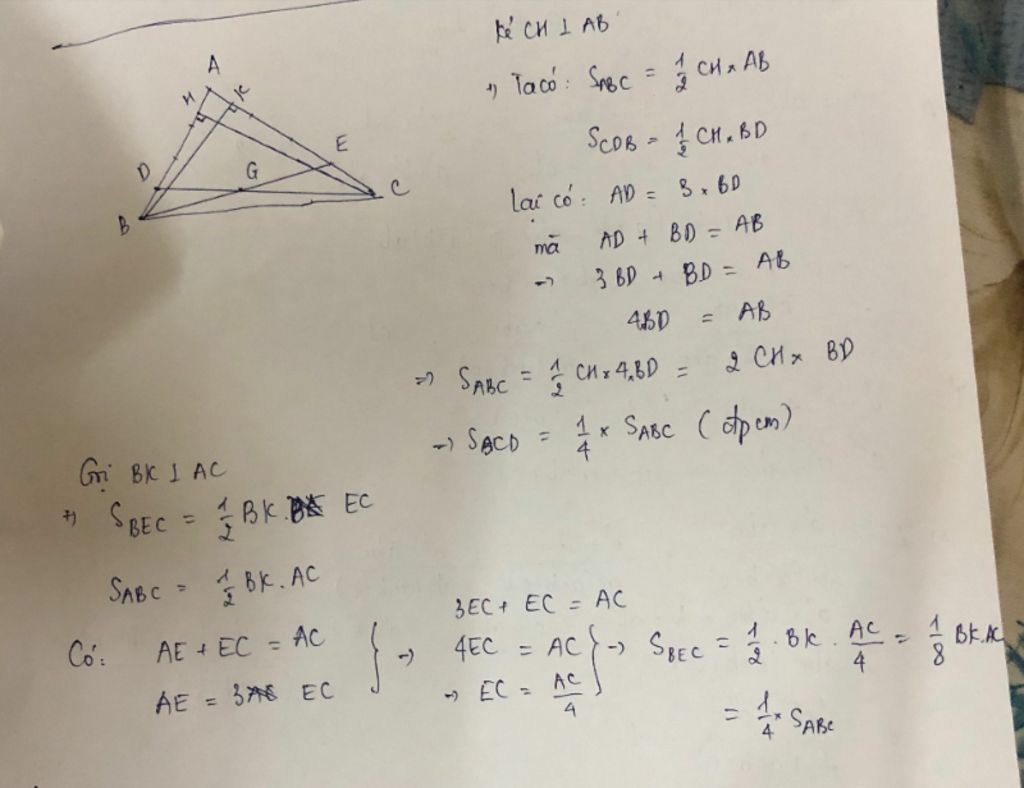 A
H
K
E
D
G
C
B
Kẻ CH ⊥ AB
+) Ta có: S_ABC = 1/2 CH × AB
S_CDB = 1/2 CH × BD
Lại có: AD = 3 × BD
mã AD + BD = AB
→ 3BD + BD = AB
4BD = AB
=> S_ABC = 1/2 CH × 4.BD = 2 CH × BD
→ S_BCD = 1/4 × S_ABC (đpcm)
Gọi BK ⊥ AC
+) S_BEC = 1/2 BK. EC
S_ABC = 1/2 BK. AC
Có: AE + EC = AC
AE = 3 EC
} → 3EC + EC = AC
4EC = AC
→ EC = AC/4
} → S_BEC = 1/2 . BK . AC/4 = 1/8 BK.AC
= 1/4 × S_ABC